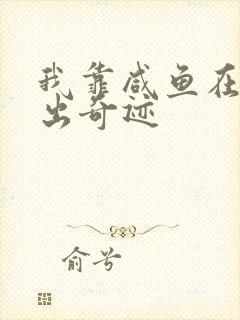 我靠咸鱼在
出奇迹
俞兮